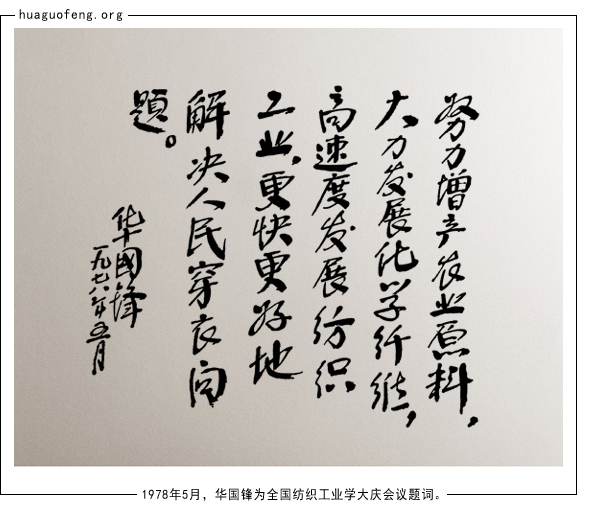 huaguofeng.org
努力增产农业原料，
大力发展化学纤维，
高速度发展纺织
工业，更快更好地
解决人民穿衣问
题。
华國锋
一九七八年五月
1978年5月，华国锋为全国纺织工业学大庆会议题词。